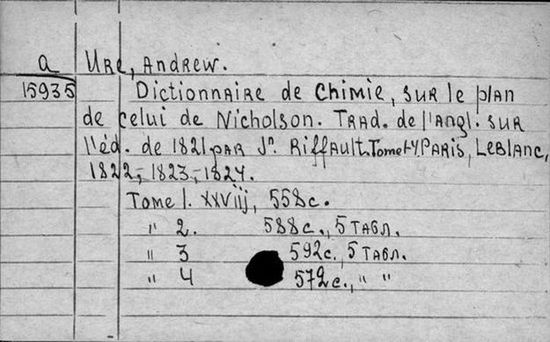 a URE, ANDREW.
15935 Dictionnaire de Chimie, sur le plan
de celui de Nicholson. Trad. de l'angl. sur
l'éd. de 1821 par Jn. Riffault. Tome I-IV Paris, Leblanc,
1822, -1823, -1824.
Tome I. XXViij, 558 с.
" 2. 588 с., 5 табл.
" 3 592 с., 5 табл.
" 4 572 с., " "